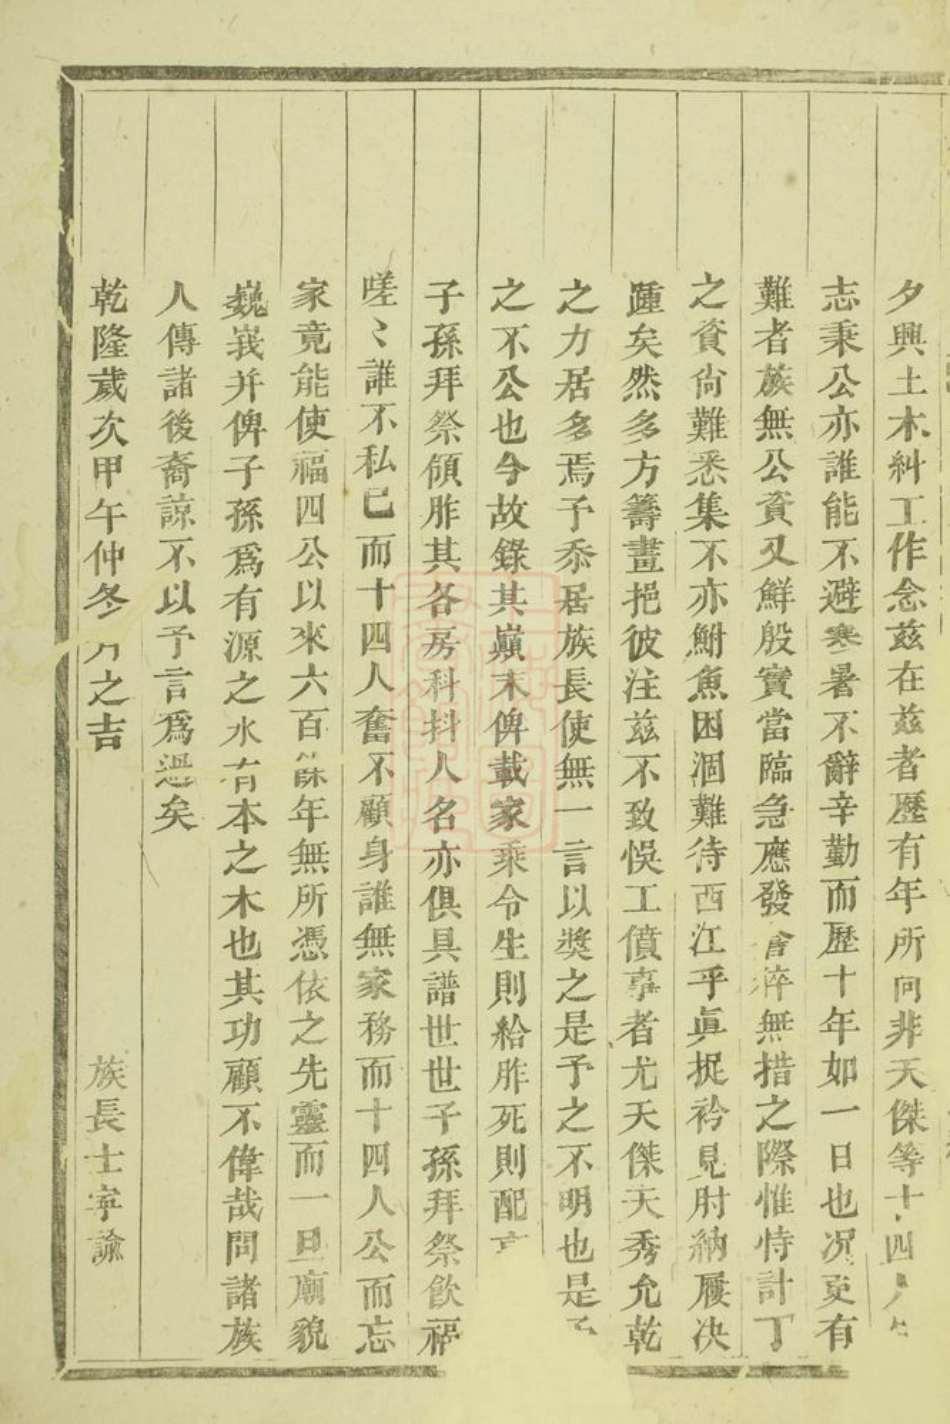 夕興土木糾工作念茲在茲者歷有年所向非天傑等十四人
志秉公亦誰能不避寒暑不辭辛勤而歷十年如一日也况更有
難者族無公資又鮮殷實當臨急應發倉猝無措之際惟恃計丁
之資尙難悉集不亦鮒魚困涸難待西江乎眞捉衿見肘納屨决
踵矣然多方籌畫挹彼注茲不致悞工僨事者尤天傑天秀允乾
之力居多焉予忝居族長使無一言以奬之是予之不明也是
之不公也今故錄其巔末俾載家乘令生則給胙死則配
子孫拜祭傾胙其各房科抖人名亦俱具譜世世子孫拜祭飲福
嗟〻誰不私已而十四人奮不顧身誰無家務而十四人公而忘
家竟能使福四公以來六百餘年無所憑依之先靈而一旦廟貌
巍峩并俾子孫爲有源之水有本之木也其功顧不偉哉問諸族
人傳諸後裔諒不以予言爲過矣
乾隆歲次甲午仲冬月之吉 族長士寧諭